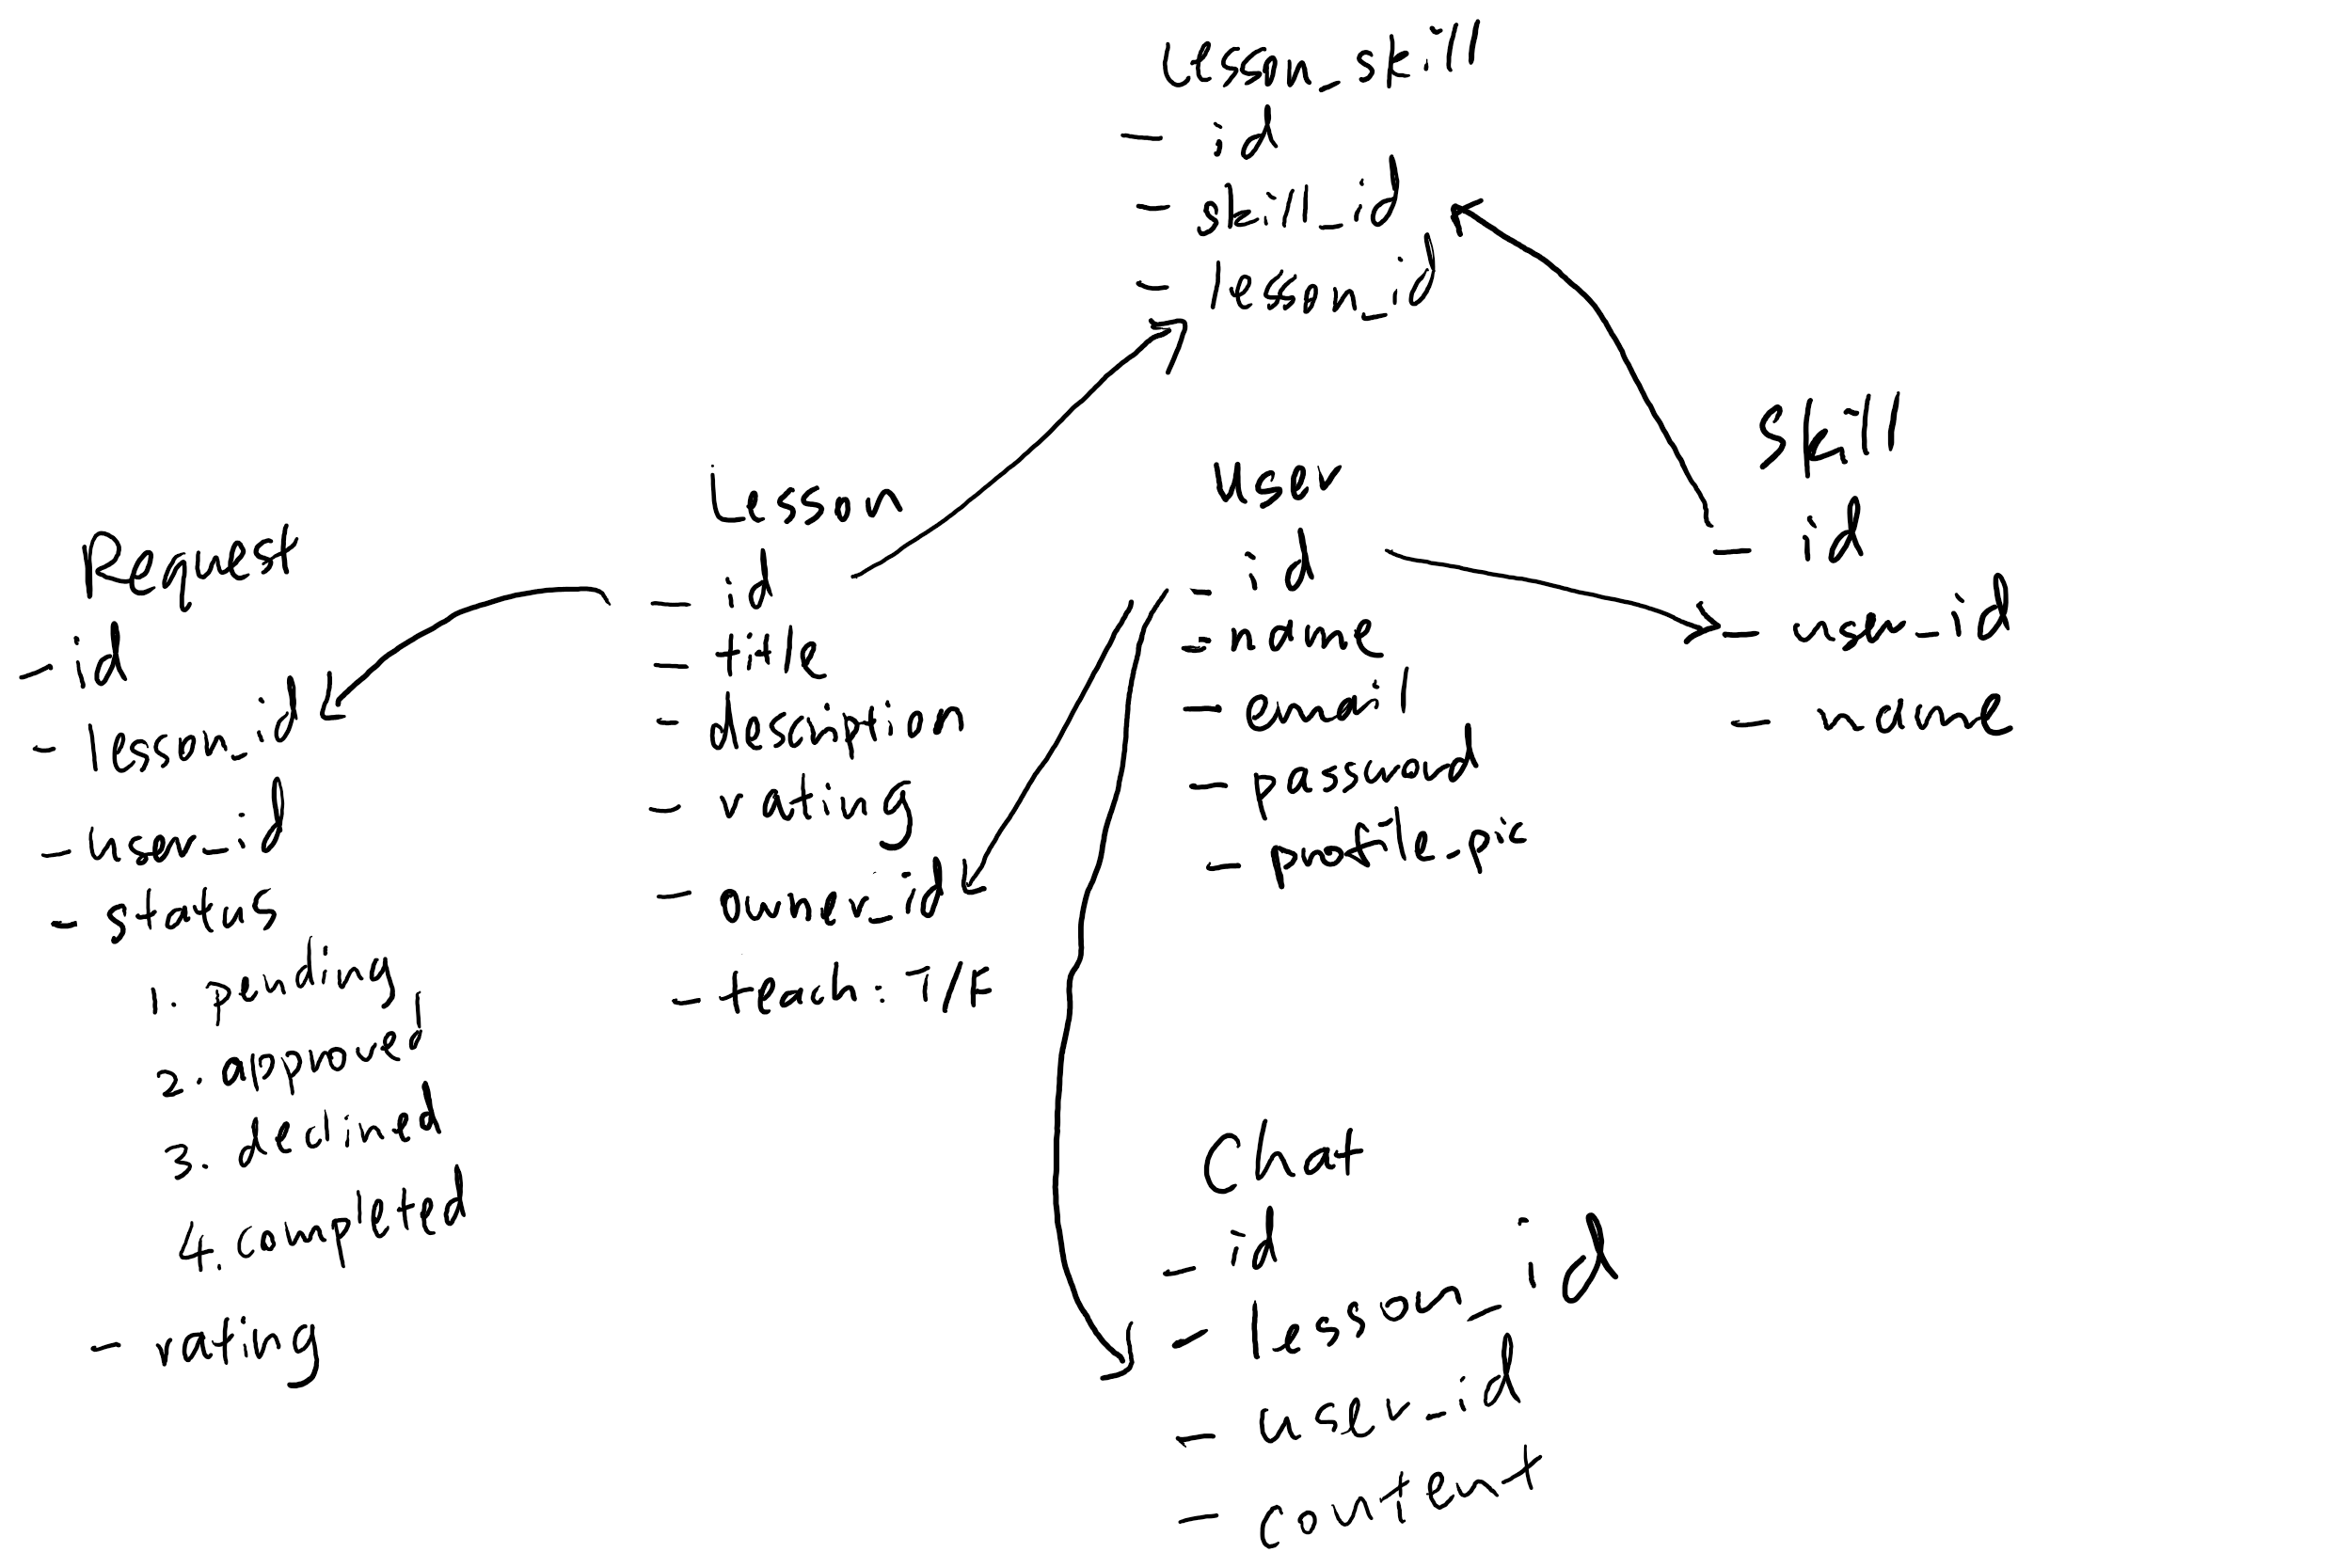 lesson_skill
- id
- skill_id
- lesson_id
Request
- id
- lesson_id
- user_id
- status
1. pending
2. approved
3. declined
4. completed
- rating
Lesson
- id
- title
- description
- rating
- owner_id
- teach: T/F
User
- id
- name
- email
- password
- profile_pic
Skill
- id
- user_id
- name
Chat
- id
- lesson_id
- user_id
- content